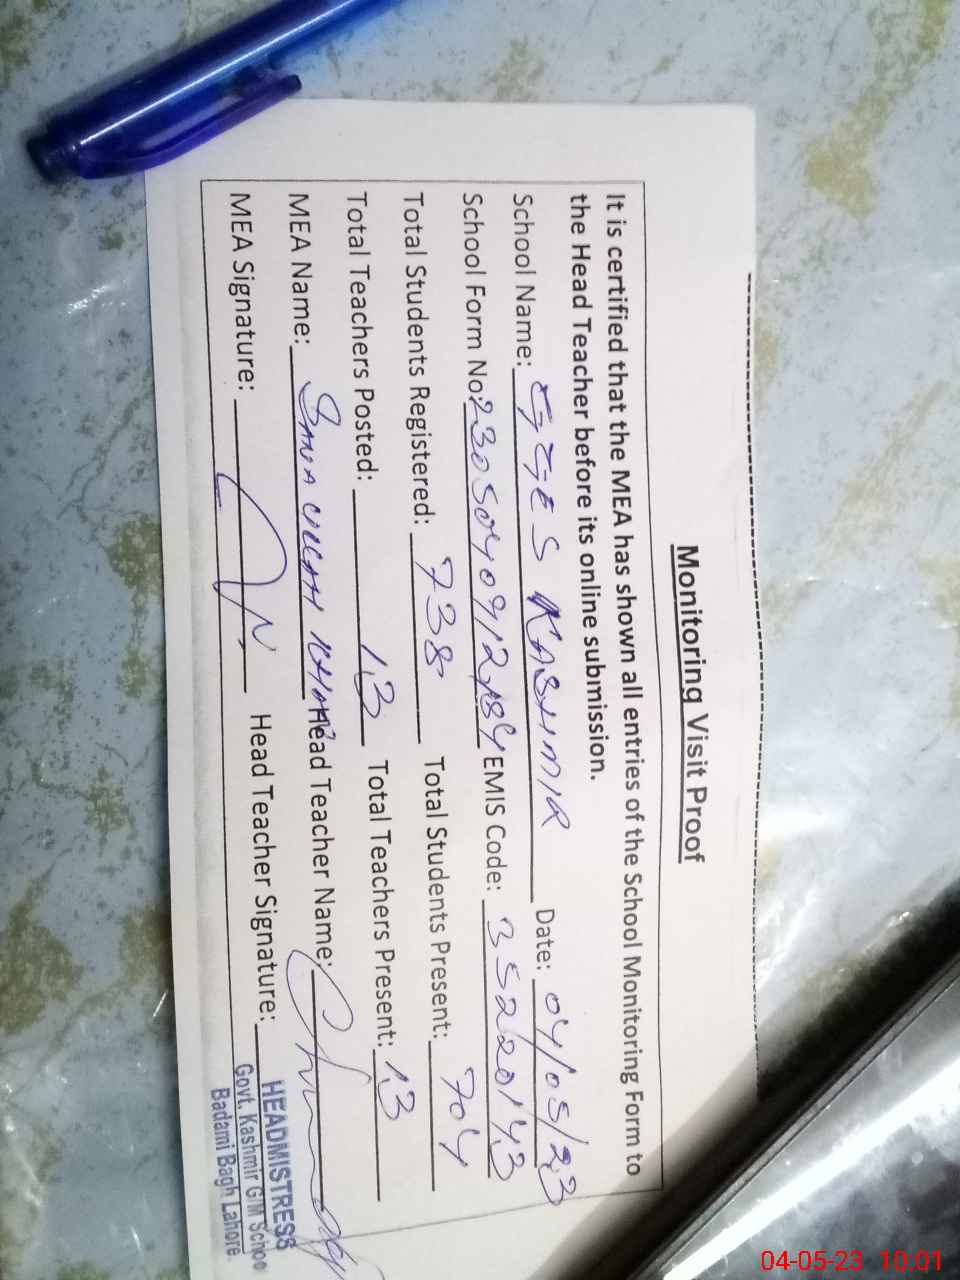 Monitoring Visit Proof
It is certified that the MEA has shown all entries of the School Monitoring Form to
the Head Teacher before its online submission.
School Name: GGES KASHMIR Date: 04/05/23
School Form No: EMIS Code: 35220143
Total Students Registered: 738 Total Students Present: 704
Total Teachers Posted: 13 Total Teachers Present: 13
MEA Name: SANA ULLAH KHAN Head Teacher Name:
MEA Signature: Head Teacher Signature:
HEADMISTRESS
Govt. Kashmir G/M Schoo
Badami Bagh Lahore.
04-05-23 10:01